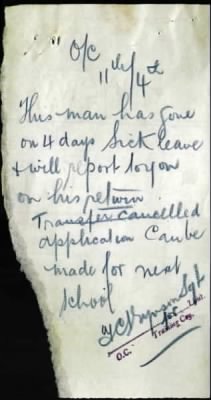 O/C
11th/4th
This man has gone
on 4 days Sick leave
& will report to you
on his return
Transfer Cancelled
application Can be
made for next
School
Sgt
for
O.C. Training Coy.